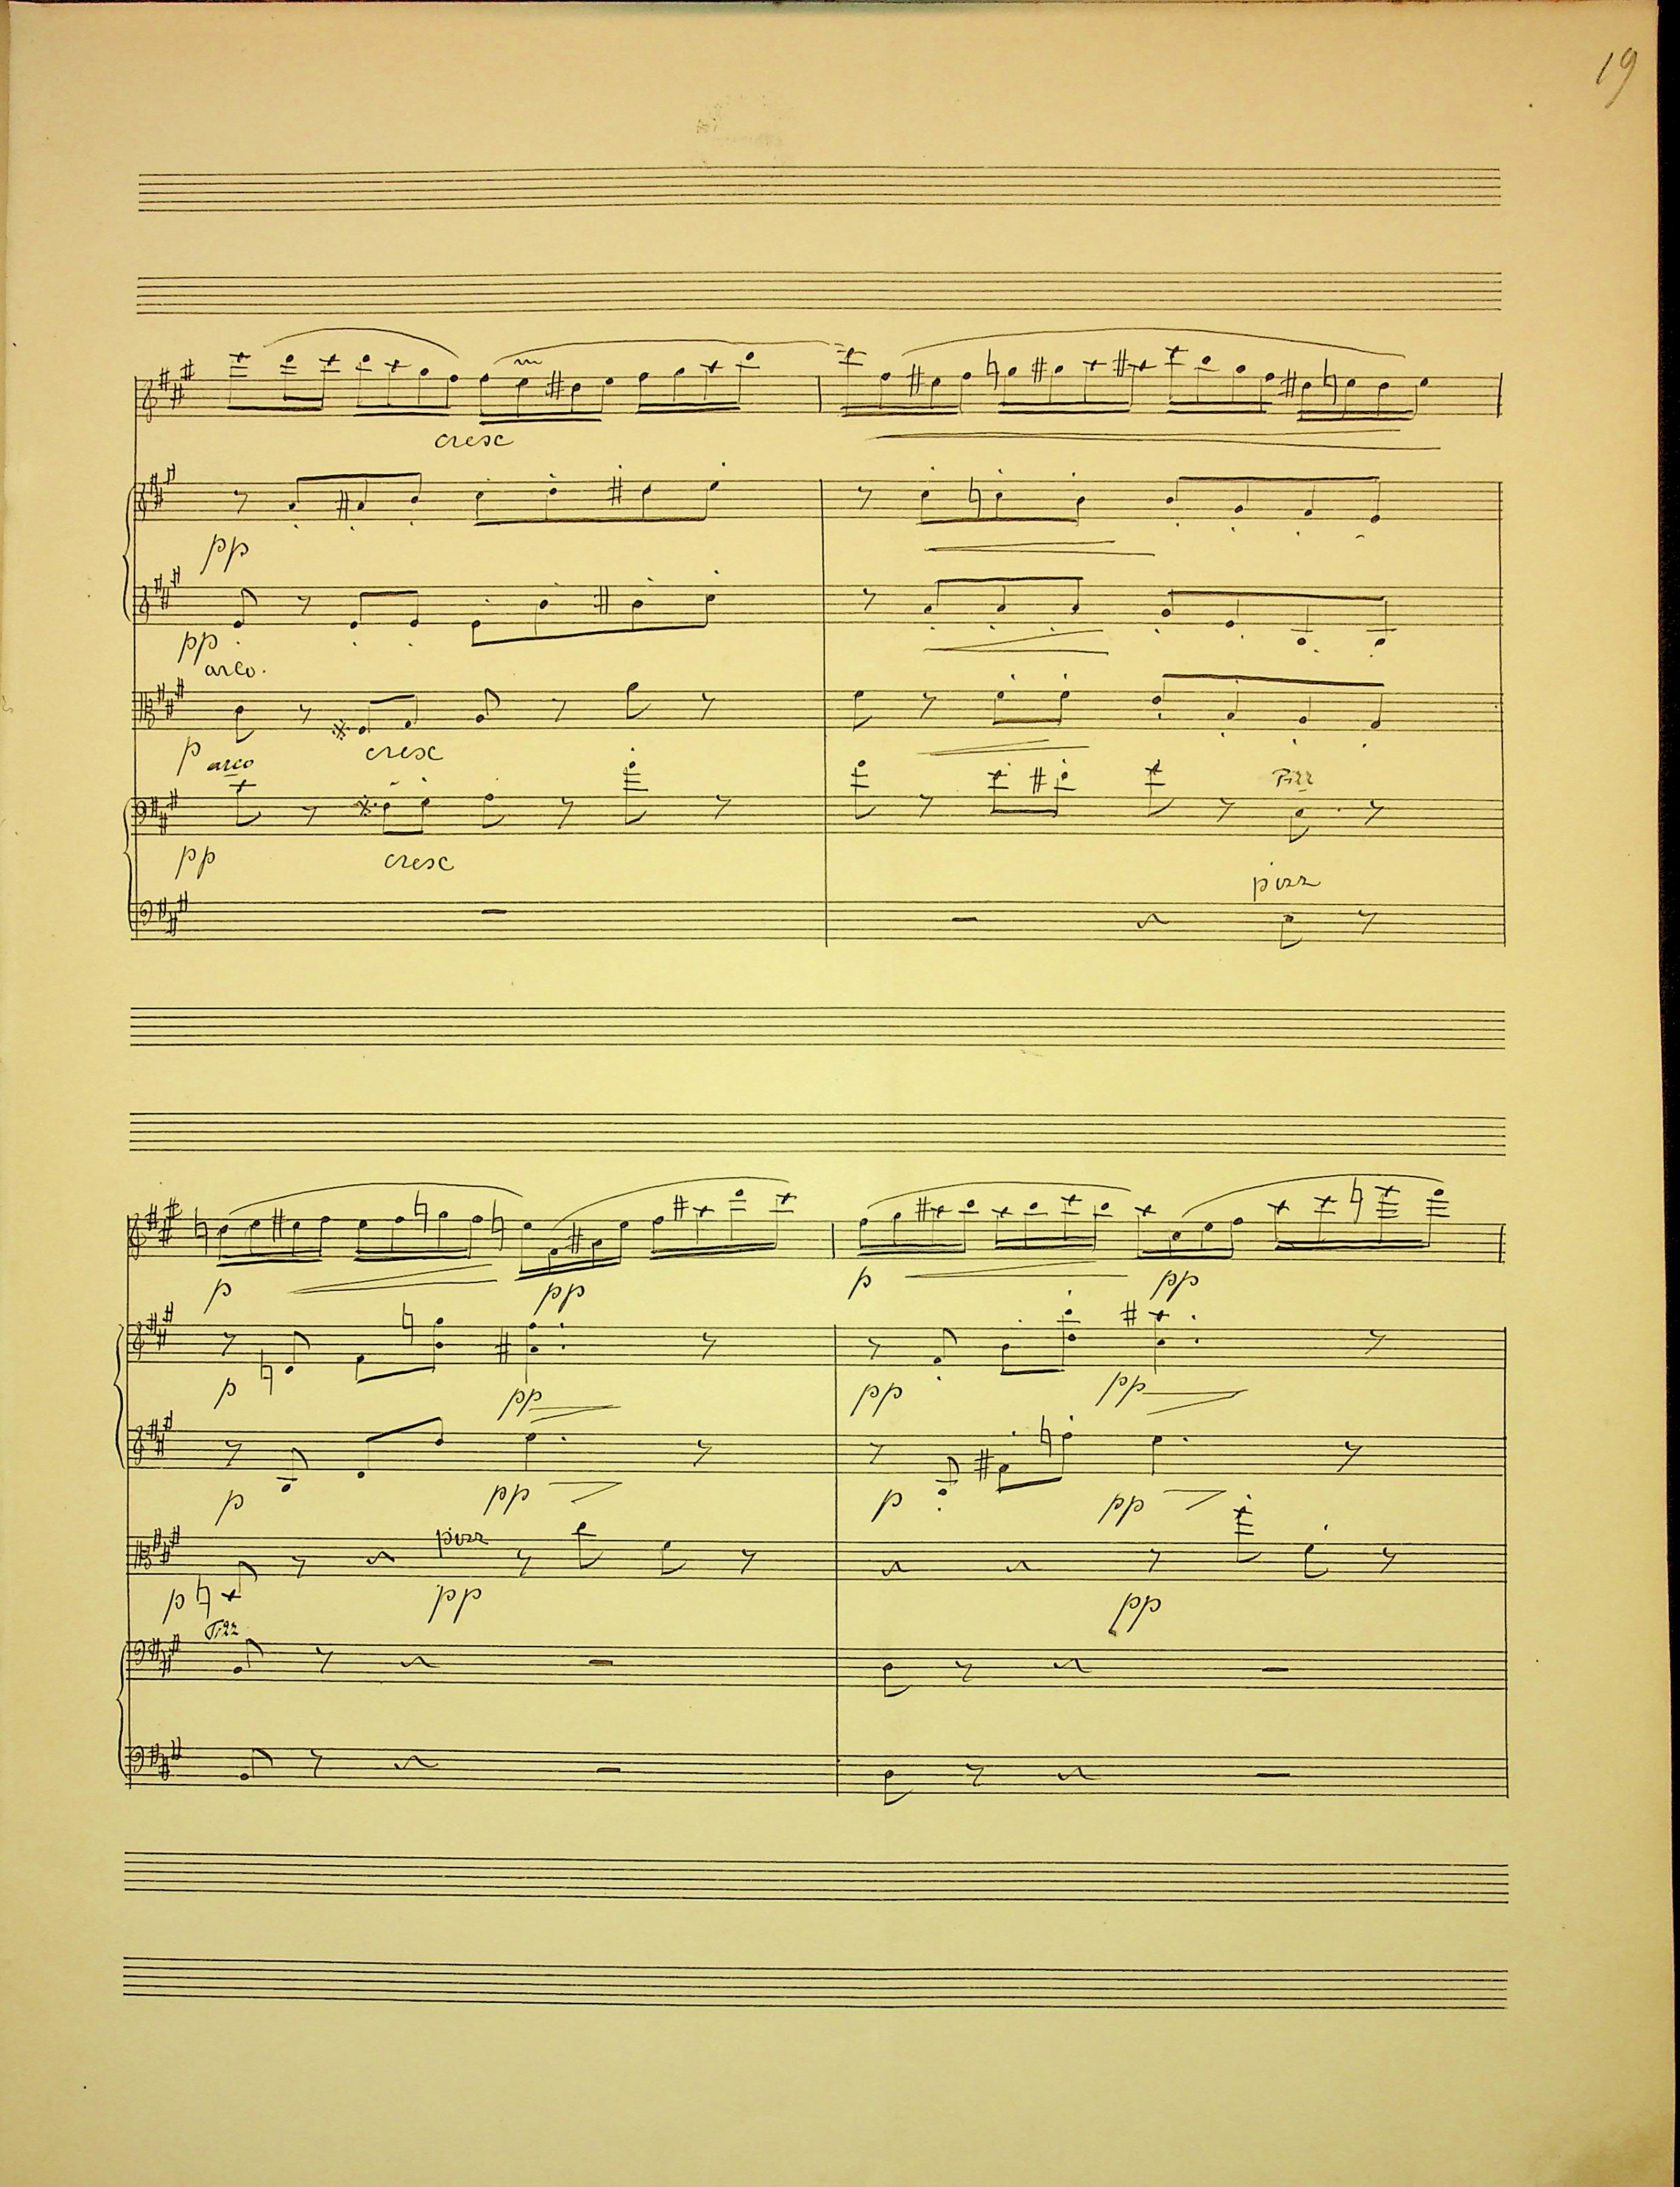 19
cresc
pp
pp
arco.
p
arco
cresc
Pizz
pp
cresc
pizz
p
pp
p
pp
p
pp
pp
pp
p
pp
p
pp
pizz
p
pp
pp
Pizz